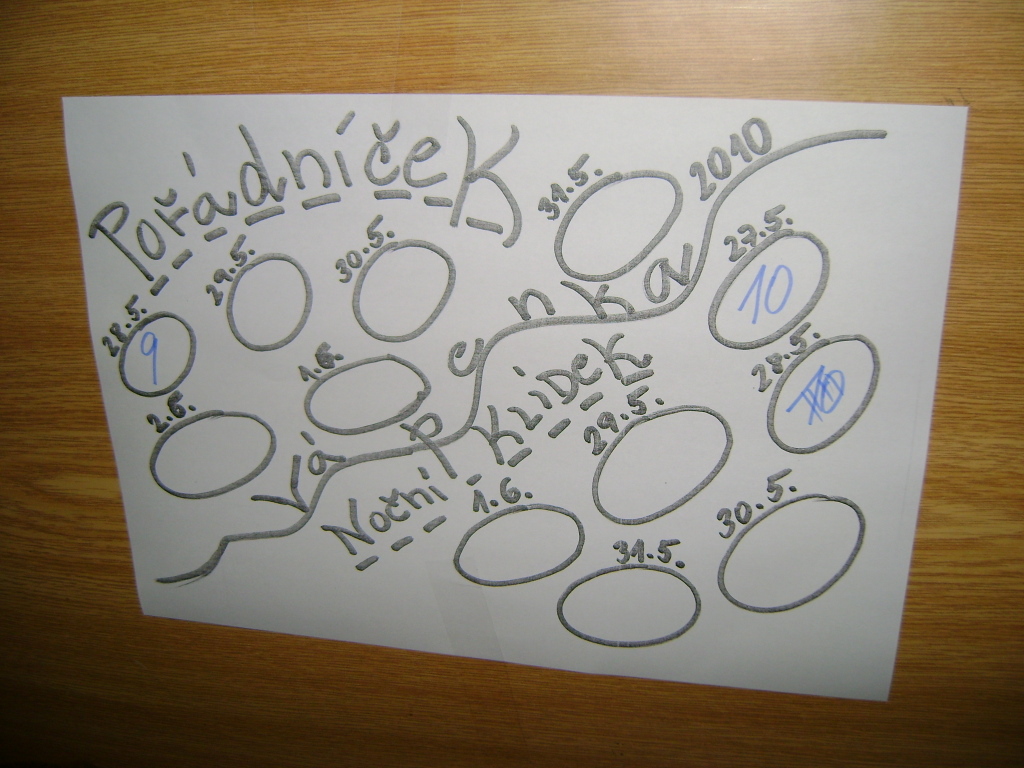 PořádníčeK
28.5.
9
29.5.
30.5.
31.5.
1.6.
2.6.
Vápenka 2010
Noční KLiDeK
27.5.
10
28.5.
29.5.
30.5.
31.5.
1.6.